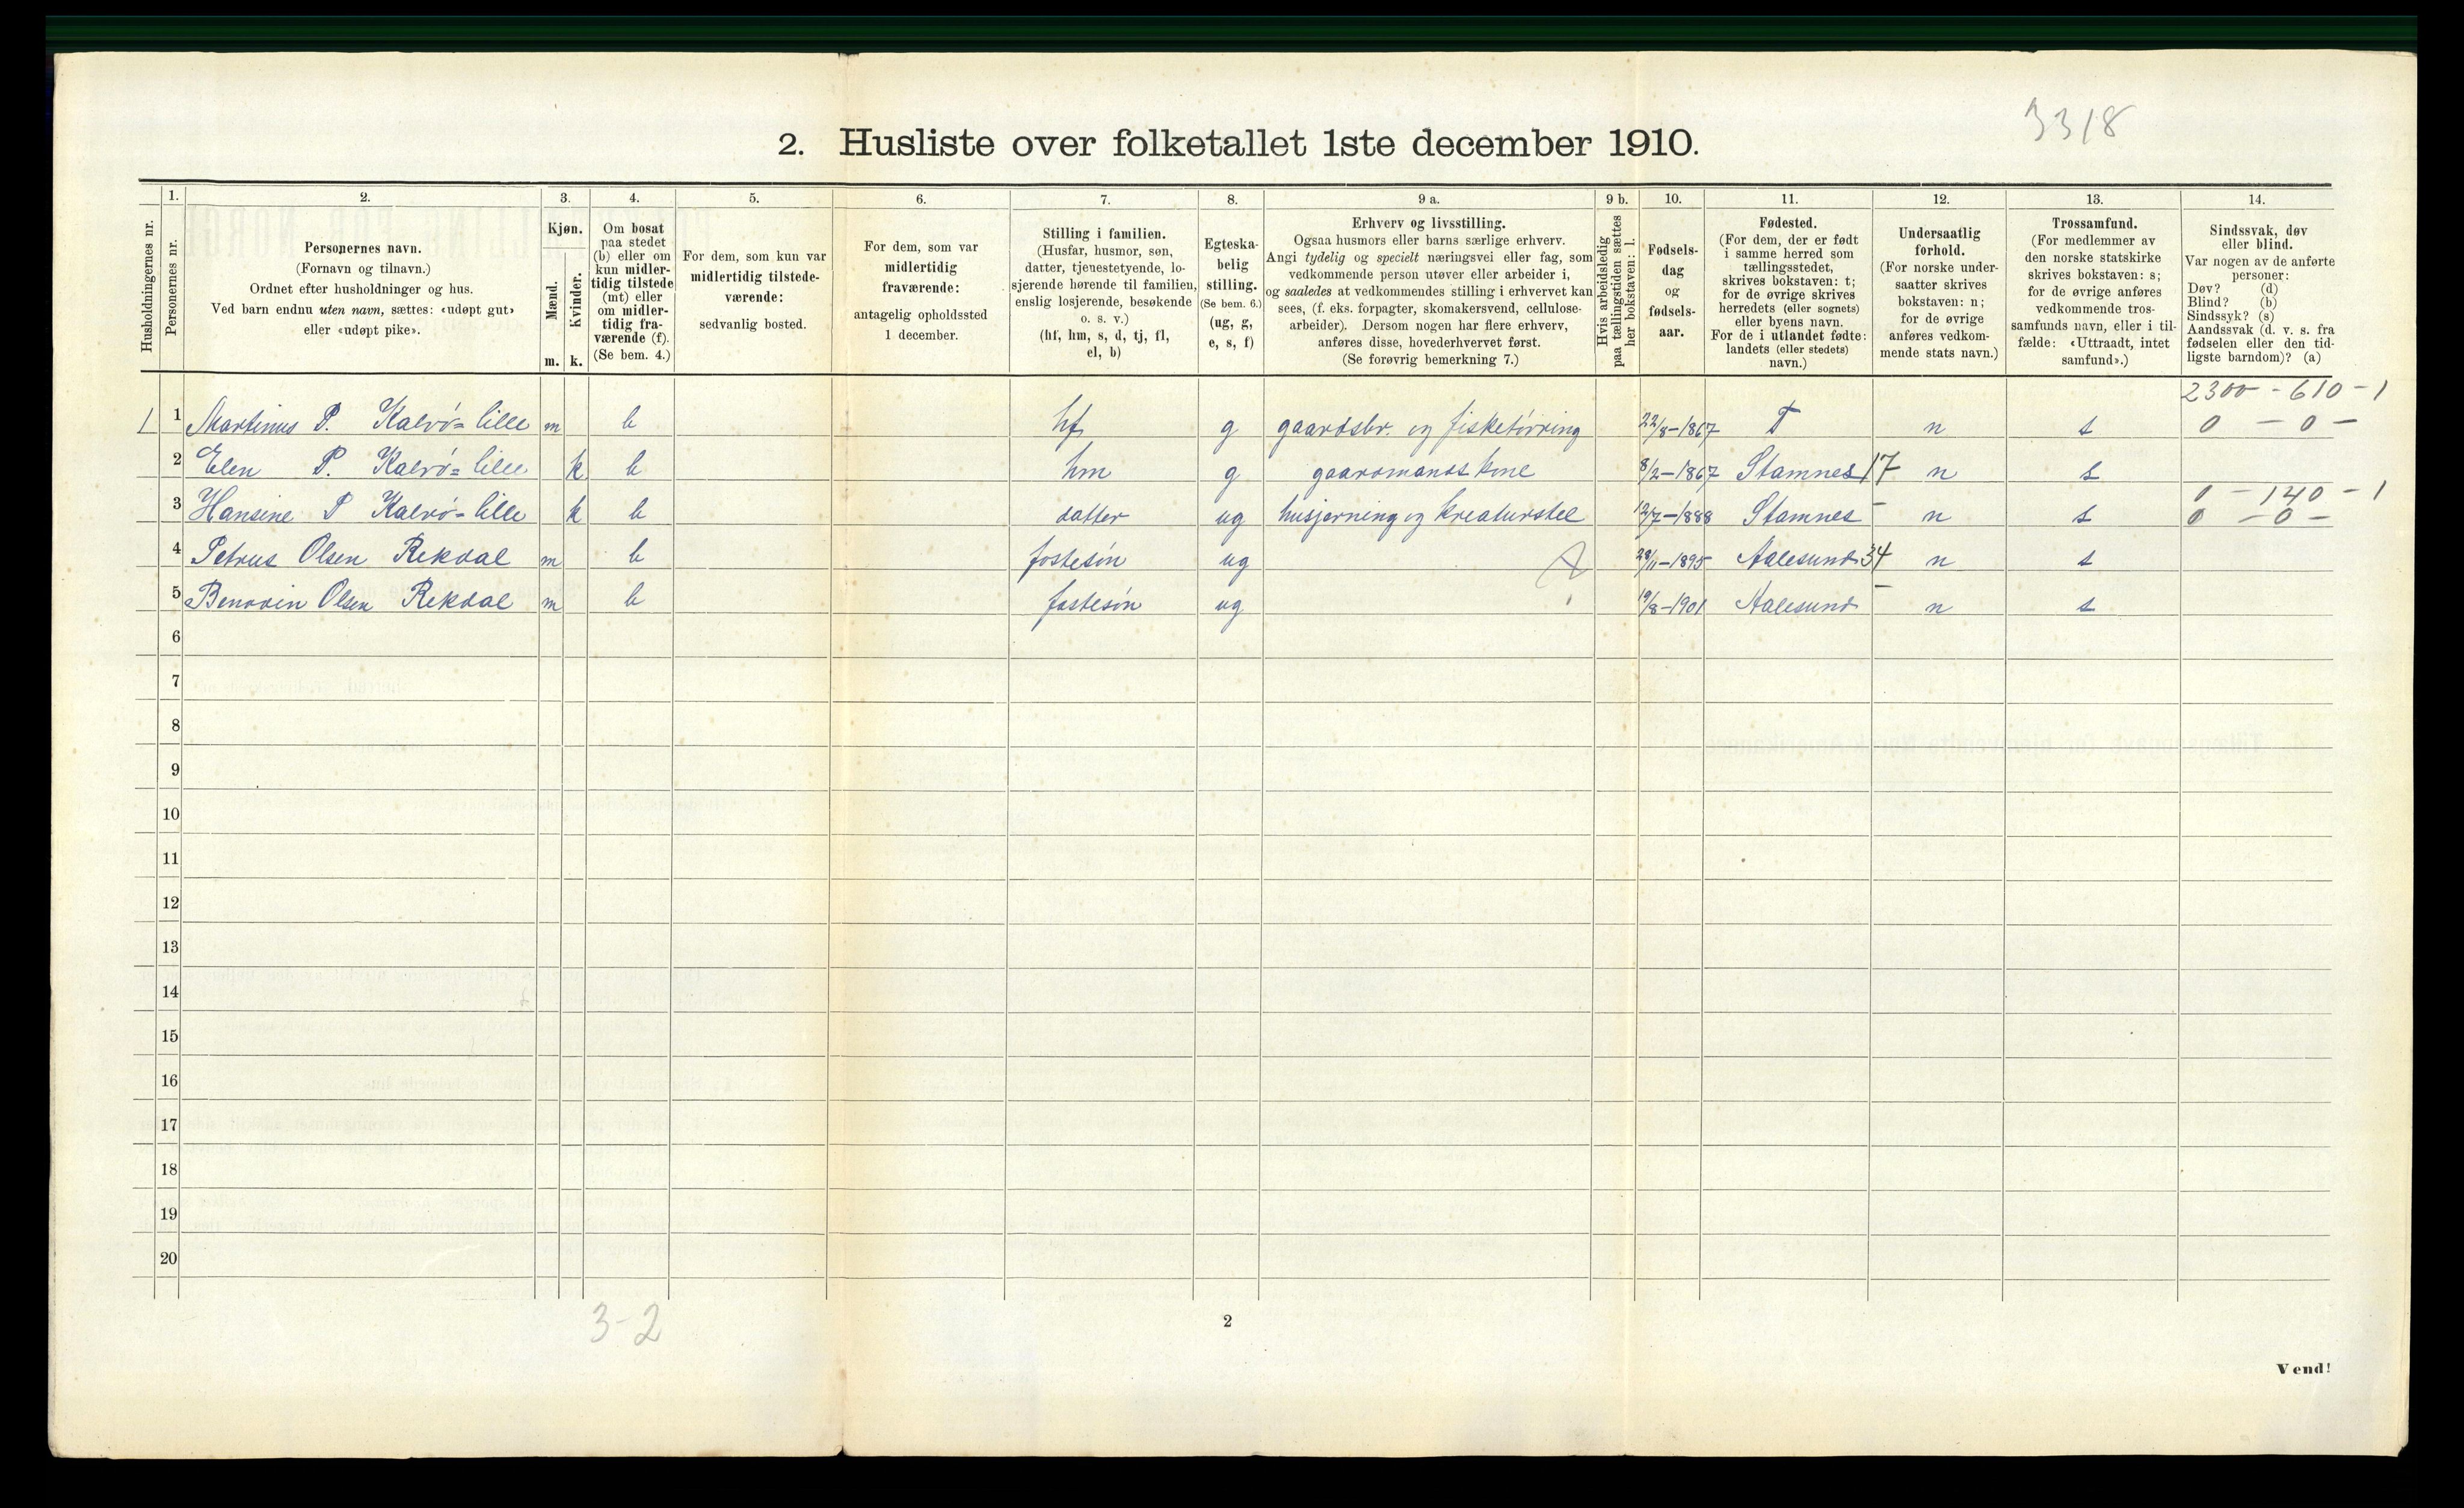 3318
2. Husliste over folketallet 1ste december 1910.
1. 2. 3. 4. 5. 6. 7. 8. 9 a. 9 b. 10. 11. 12. 13. 14.
Husholdningernes nr.
Personernes nr.
Personernes navn.
(Fornavn og tilnavn.)
Ordnet efter husholdninger og hus.
Ved barn endnu uten navn, sættes: «udøpt gut»
eller «udøpt pike».
Kjøn.
Mænd.
Kvinder.
m. k.
Om bosat
paa stedet
(b) eller om
kun midler-
tidig tilstede
(mt) eller
om midler-
tidig fra-
værende (f).
(Se bem. 4.)
For dem, som kun var
midlertidig tilstede-
værende:
sedvanlig bosted.
For dem, som var
midlertidig
fraværende:
antagelig opholdssted
1 december.
Stilling i familien.
(Husfar, husmor, søn,
datter, tjenestetyende, lo-
sjerende hørende til familien,
enslig losjerende, besøkende
o. s. v.)
(hf, hm, s, d, tj, fl,
el, b)
Egteska-
belig
stilling.
(Se bem. 6.)
(ug, g,
e, s, f)
Erhverv og livsstilling.
Ogsaa husmors eller barns særlige erhverv.
Angi tydelig og specielt næringsvei eller fag, som
vedkommende person utøver eller arbeider i,
og saaledes at vedkommendes stilling i erhvervet kan
sees, (f. eks. forpagter, skomakersvend, cellulose-
arbeider). Dersom nogen har flere erhverv,
anføres disse, hovederhvervet først.
(Se forøvrig bemerkning 7.)
Hvis arbeidsledig
paa tællingstiden sættes
her bokstaven: l.
Fødsels-
dag
og
fødsels-
aar.
Fødested.
(For dem, der er født
i samme herred som
tællingsstedet,
skrives bokstaven: t;
for de øvrige skrives
herredets (eller sognets)
eller byens navn.
For de i utlandet fødte:
landets (eller stedets)
navn.)
Undersaatlig
forhold.
(For norske under-
saatter skrives
bokstaven: n;
for de øvrige
anføres vedkom-
mende stats navn.)
Trossamfund.
(For medlemmer av
den norske statskirke
skrives bokstaven: s;
for de øvrige anføres
vedkommende tros-
samfunds navn, eller i til-
fælde: «Uttraadt, intet
samfund».)
Sindssvak, døv
eller blind.
Var nogen av de anførte
personer:
Døv? (d)
Blind? (b)
Sindssyk? (s)
Aandssvak (d. v. s. fra
fødselen eller den tid-
ligste barndom)? (a)
2300 - 610 - 1
1 1 Martinus P. Kalvö=lille m b hf g gaardsbr. og fisketörring 22/8-1867 T n s 0 - 0 -
2 Elen P. Kalvö=lille k b hm g gaardmands kone 8/2-1867 Stamnes 17 n s
0 - 140 - 1
3 Hansine P Kalvö=lille k b datter ug husgjerning og kreaturstel 12/7-1888 Stamnes - n s 0 - 0 -
4 Petrus Olsen Rekdal m b fostesön ug 28/11-1895 Aalesund 34 n s
5 Olsen Rekdal m b fostesön ug 19/8-1901 Aalesund - n s
6
7
8
9
10
11
12
13
14
15
16
17
18
19
20
3-2
2
Vend!